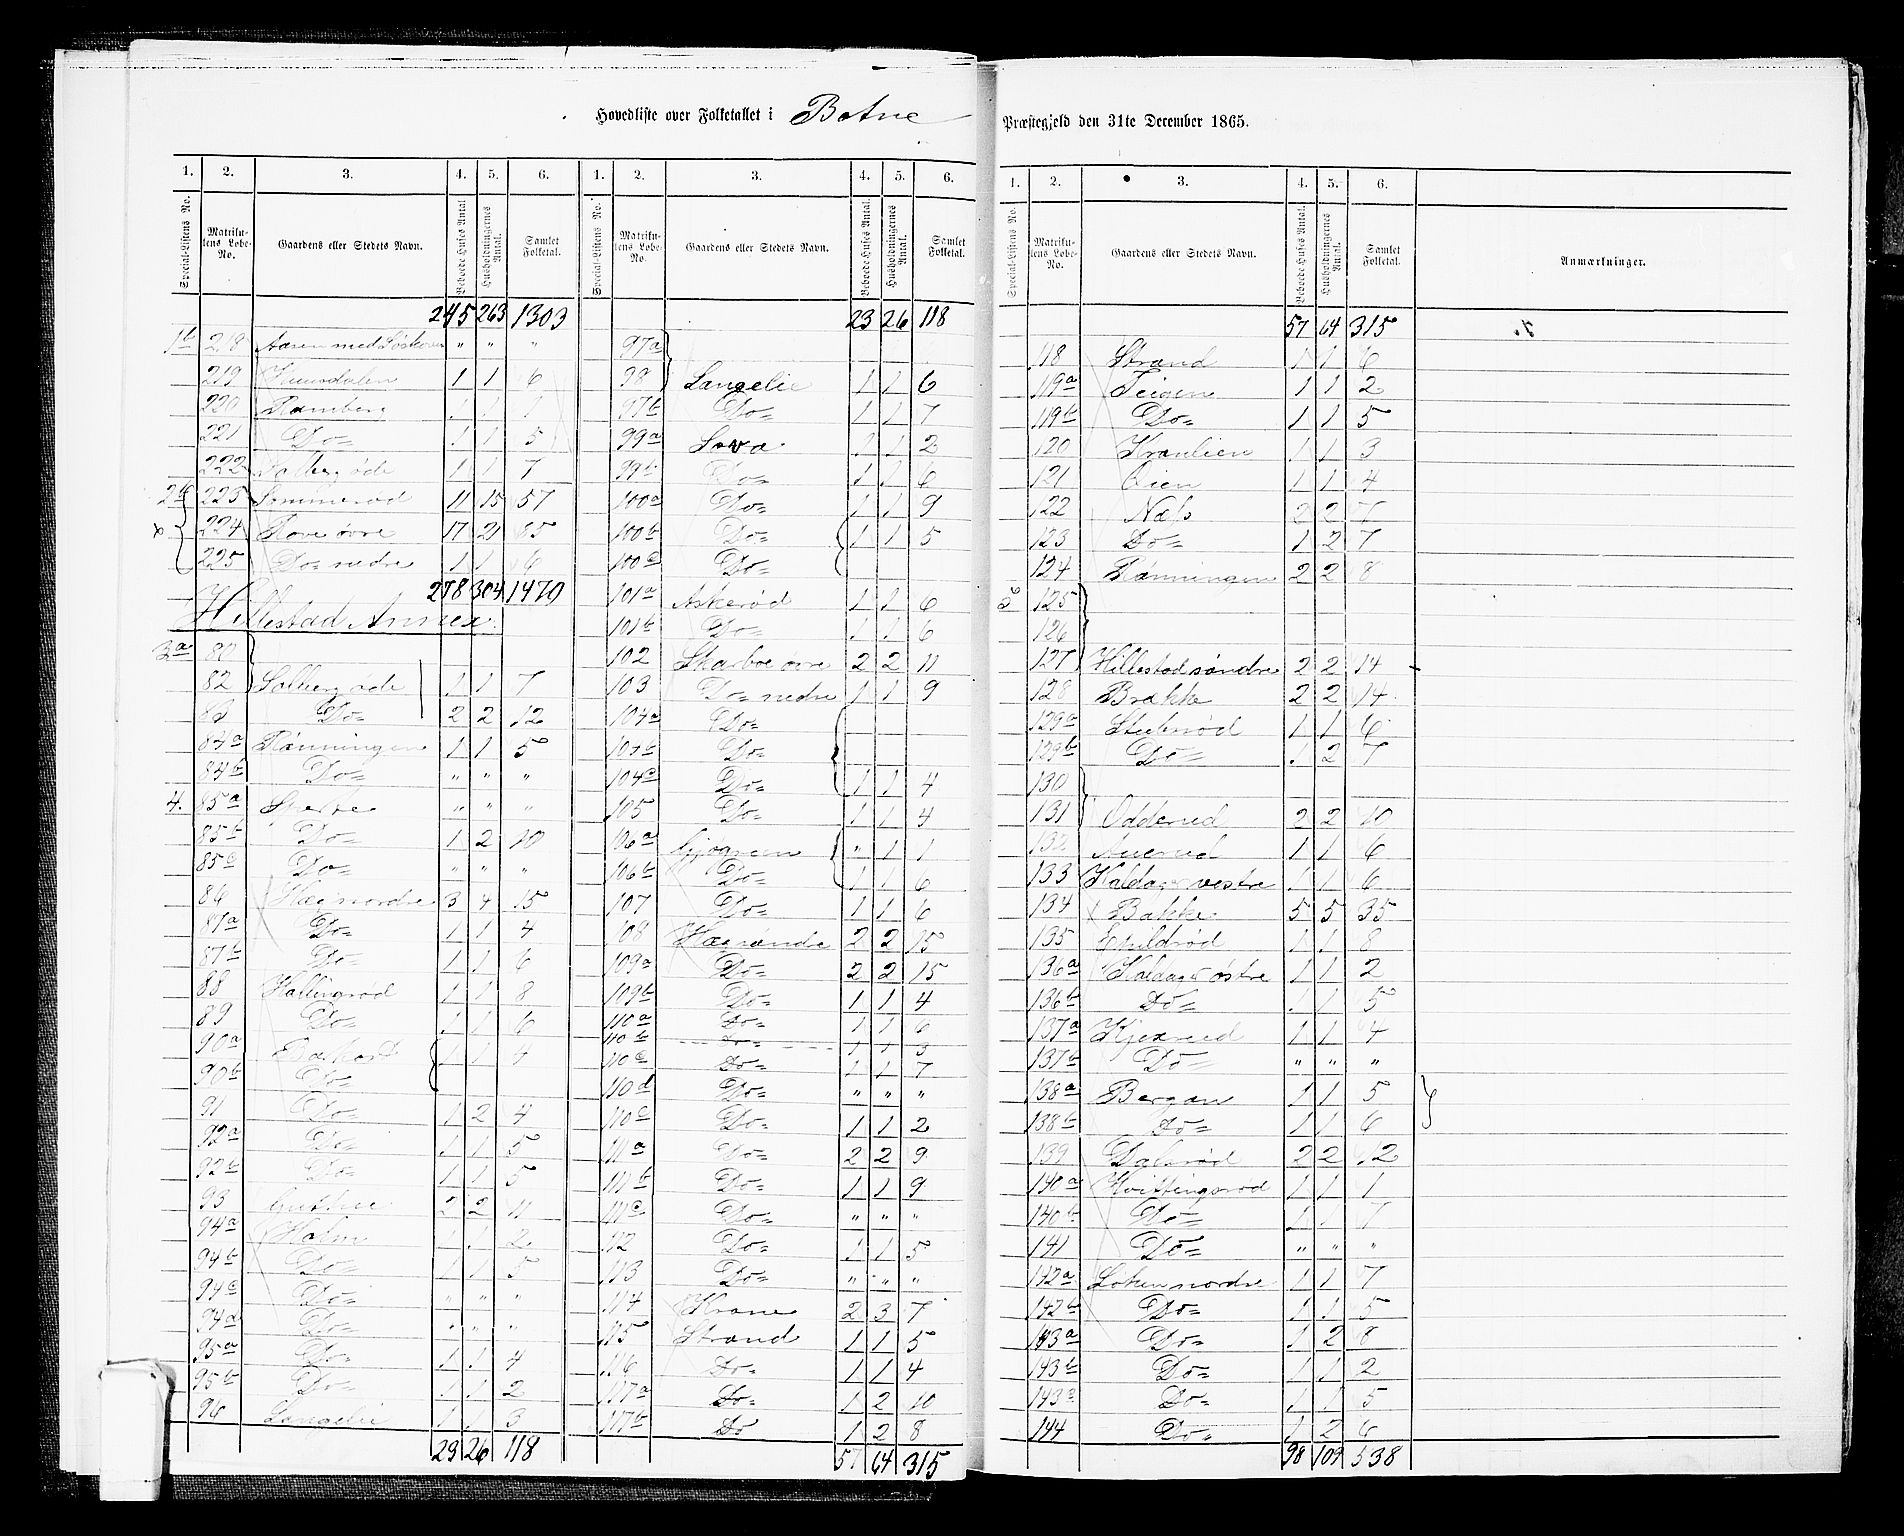 Hovedliste over Folketallet i Botne Præstegjeld den 31te December 1865.
1. 2. 3. 4. 5. 6.
Special-Listens No. Matrikulens Løbe-No. Gaardens eller Stedets Navn. Beboede Huses Antal. Husholdningernes Antal. Samlet Folketal.
245 263 1303
1b 218 Aasen med " " "
219 1 1 6
220 Ramberg 1 1 1
221 Do= 1 1 5
222 Solbergøde 1 1 7
2b 223 Sommerød 11 15 57
224 Rove øvre 17 21 85
225 Do= nedre 1 1 6
278 304 1470
Hillestad Annex.
3a 80
82 Solbergøde 1 1 7
83 Do= 2 2 12
84a Rønningen 1 1 5
84b Do= " " "
4. 85a " " "
85b Do= 1 2 10
85c Do= " " "
86 Hæg nordre 3 4 15
87a Do= 1 1 4
87b Do= 1 1 6
88 Hallingrød 1 1 8
89 Do= 1 1 6
90a 1 1 4
90b Do=
91 Do= 1 2 4
92a Do= 1 1 5
92b Do= 1 1 5
93 2 2 11
94a Holm 1 1 2
94b Do= 1 1 5
94c Do= " " "
94d Do= " " "
95a Do= 1 1 4
95b Do= 1 1 2
96 Langelie 1 1 3
23 26 118
1. 2. 3. 4. 5. 6.
Special-Listens No. Matrikulens Løbe-No. Gaardens eller Stedets Navn. Beboede Huses Antal. Husholdningernes Antal. Samlet Folketal.
23 26 118
97a
98 Langelie 1 1 6
97b Do= 1 1 7
99a Sova 1 1 2
99b Do= 1 1 6
100a Do= 1 1 9
100b Do= 1 1 5
100c Do=
101a Askerød 1 1 6
101b Do= 1 1 6
102 Skarboe øvre 2 2 11
103 Do= nedre 1 1 9
104a Do=
104b Do=
104c Do= 1 1 4
105 Do= 1 1 4
106a " 1 1
106b Do= 1 1 6
107 Do= 1 1 6
108 Hæg søndre 2 2 15
109a Do= 2 2 15
109b Do= 1 1 4
110a Do= 1 1 6
110b Do= 1 1 3
110c Do= 1 1 7
110d Do= " " "
110e Do= 1 1 2
111a Do= 2 2 9
111b Do= 1 1 9
111c Do= " " "
112 Do= 1 1 5
113 Do= " " "
114 Krane 2 3 7
115 Strand 1 1 5
116 Do= 1 1 4
117a Do= 1 2 10
117b Do 1 2 8
57 64 315
1. 2. 3. 4. 5. 6.
Special-Listens No. Matrikulens Løbe-No. Gaardens eller Stedets Navn. Beboede Huses Antal. Husholdningernes Antal. Samlet Folketal. Anmærkninger.
57 64 315
118 Strand 1 1 6
119a Teigen 1 1 2
119b Do= 1 1 5
120 Kranlien 1 1 3
121 Øien 1 1 4
122 Næs 2 2 7
123 Do= 1 2 7
124 Rønningen 2 2 8
125
126
127 Hillestad søndre 2 2 14
128 Brække 2 2 14
129a Stubsrød 1 1 6
129b Do= 1 2 7
130
131 Odderud 2 2 10
132 Auerud 1 1 6
133 Haldager vestre 1 1 6
134 Bakke 5 5 35
135 Eskildrød 1 1 8
136a Haldager østre 1 1 2
136b Do= 1 1 5
137a Kjexrud 1 1 4
137b Do= " " "
138a Bergan 1 1 5
138b Do= 1 1 6
139 Dalsrød 2 2 12
140a Kvittingsrød 1 1 1
140b Do= 1 1 7
141 Do= " " "
142a Løken nordre 1 1 7
142b Do= 1 1 5
143a Do= 1 2 8
143b Do= 1 1 2
143c Do= 1 1 5
144 Do= 1 2 6
98 109 538